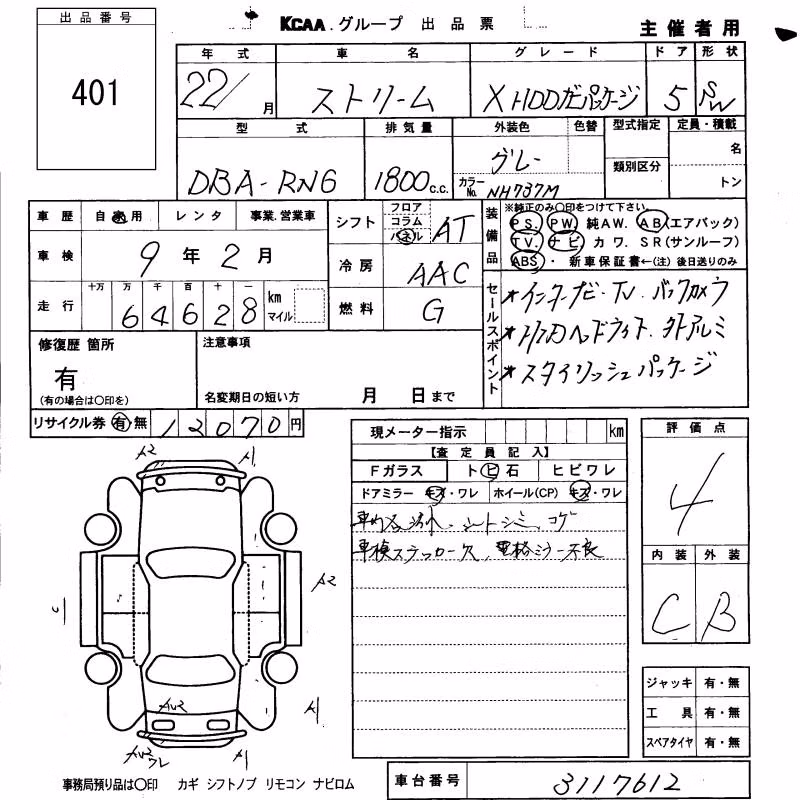 出品番号
401
KCAA.グループ 出品票
主催者用
年式 車名 グレード ドア 形状
22/月 ストリーム X HDDナビパッケージ 5 SW
型式 排気量 外装色 色替 型式指定 定員・積載
DBA-RN6 1800c.c. グレー 名
カラーNo. NH737M 類別区分 トン
車歴 自家用 レンタ 事業.営業車
車検 9年2月
走行 十万 万 千 百 十 一
64628 km マイル
シフト フロア コラム パネル AT
冷房 AAC
燃料 G
装備品 ※純正のみ〇印をつけて下さい。
PS. PW. 純AW. AB(エアバック)
TV. ナビ カワ. SR(サンルーフ)
ABS・新車保証書←(注)後日送りのみ
セールスポイント
*インターナビ・TV. バックカメラ
*HIDヘッドライト. 外アルミ
*スタイリッシュパッケージ
修復歴 箇所
有
(有の場合は〇印を)
注意事項
名変期日の短い方 月 日まで
リサイクル券 有 無 13070円
現メーター指示 km
【査定員記入】
Fガラス トビ石 ヒビワレ
ドアミラー キズ・ワレ ホイール(CP) キズ・ワレ
車内汚れ. シートシミ. コゲ
車検ステッカー欠. 電格ミラー不良
評価点
4
内装 外装
C B
A2 A1
A2
A1
AU2
AU2 ワレ A1
ジャッキ 有・無
工具 有・無
スペアタイヤ 有・無
事務局預り品は〇印 カギ シフトノブ リモコン ナビロム
車台番号 3117612